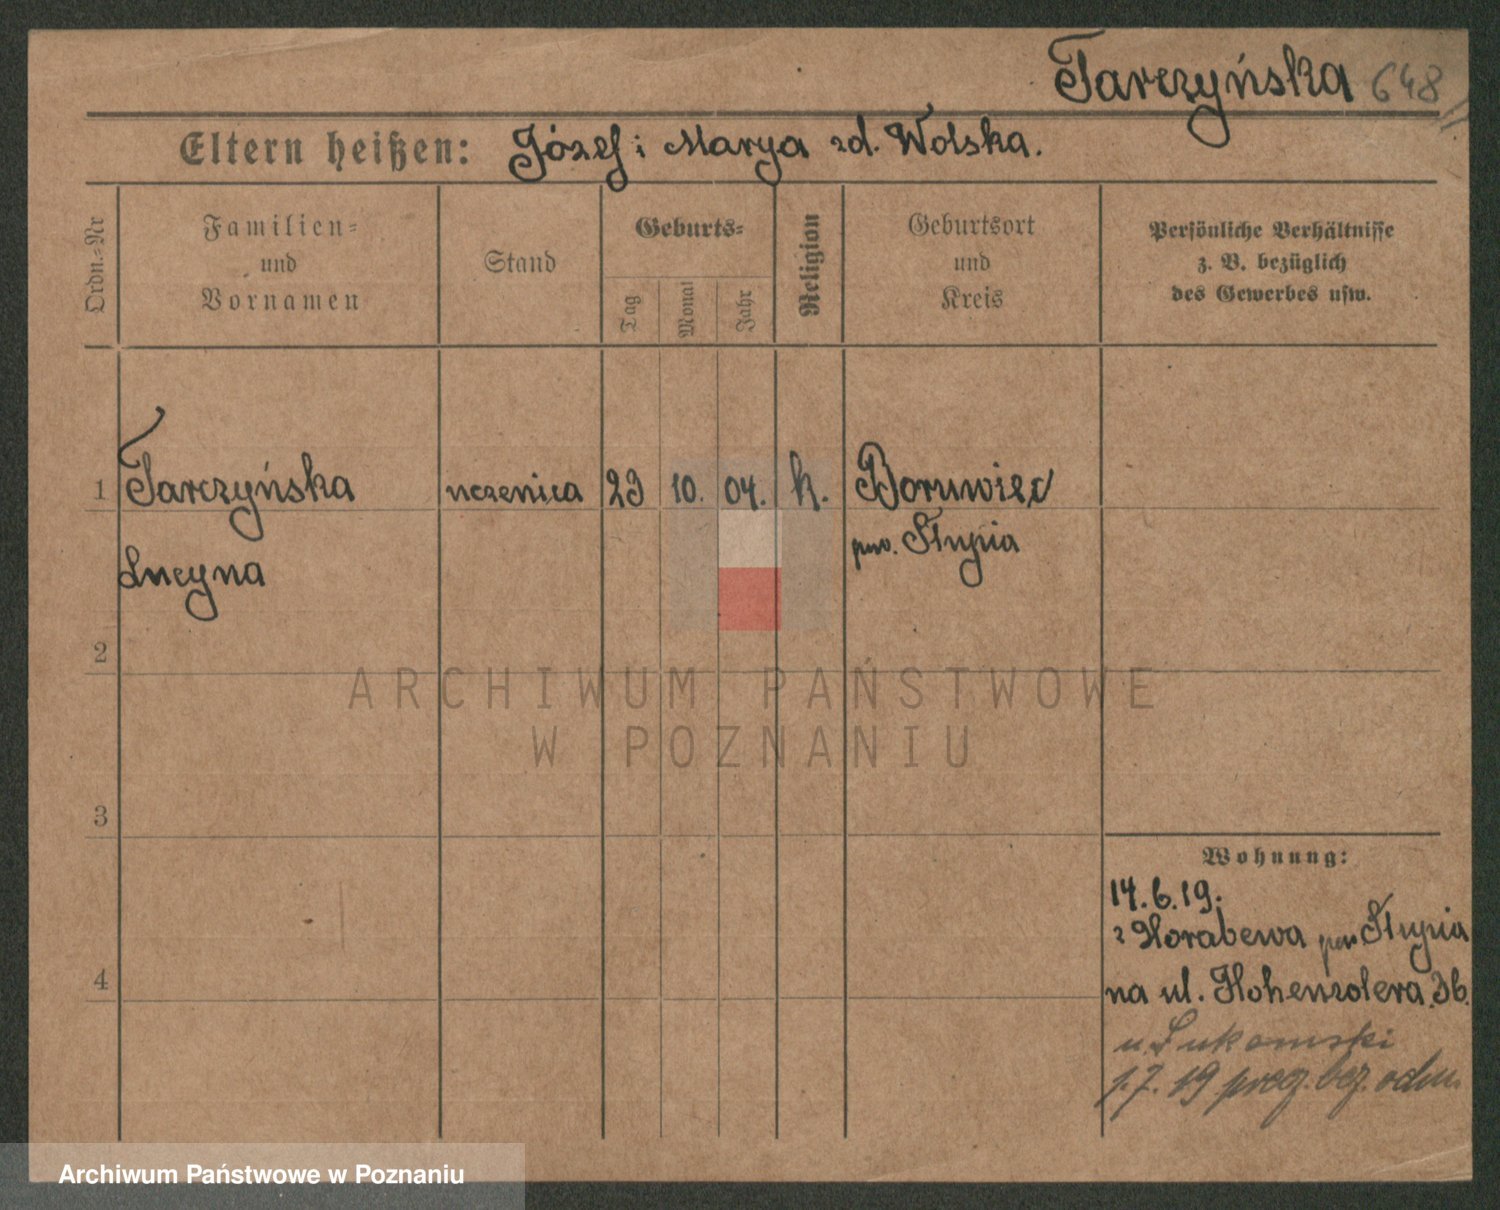 Tarczyńska 648
Eltern heißen: Józef i Marya zd. Wolska.
Ordn.-Nr
Familien-
und
Vornamen
Stand
Geburts-
Tag
Monat
Jahr
Religion
Geburtsort
und
Kreis
Persönliche Verhältnisse
z. B. bezüglich
des Gewerbes usw.
1 Tarczyńska uczenica 23 10. 04. k. Boruwiec
pow. Słupia
Lucyna
2
ARCHIWUM PAŃSTWOWE
W POZNANIU
3
Wohnung:
14.6.19.
z Horabewa pow Słupia
4
na ul. Hohenzolera 36.
u. Łukomski
1.7.19 bez.
Archiwum Państwowe w Poznaniu